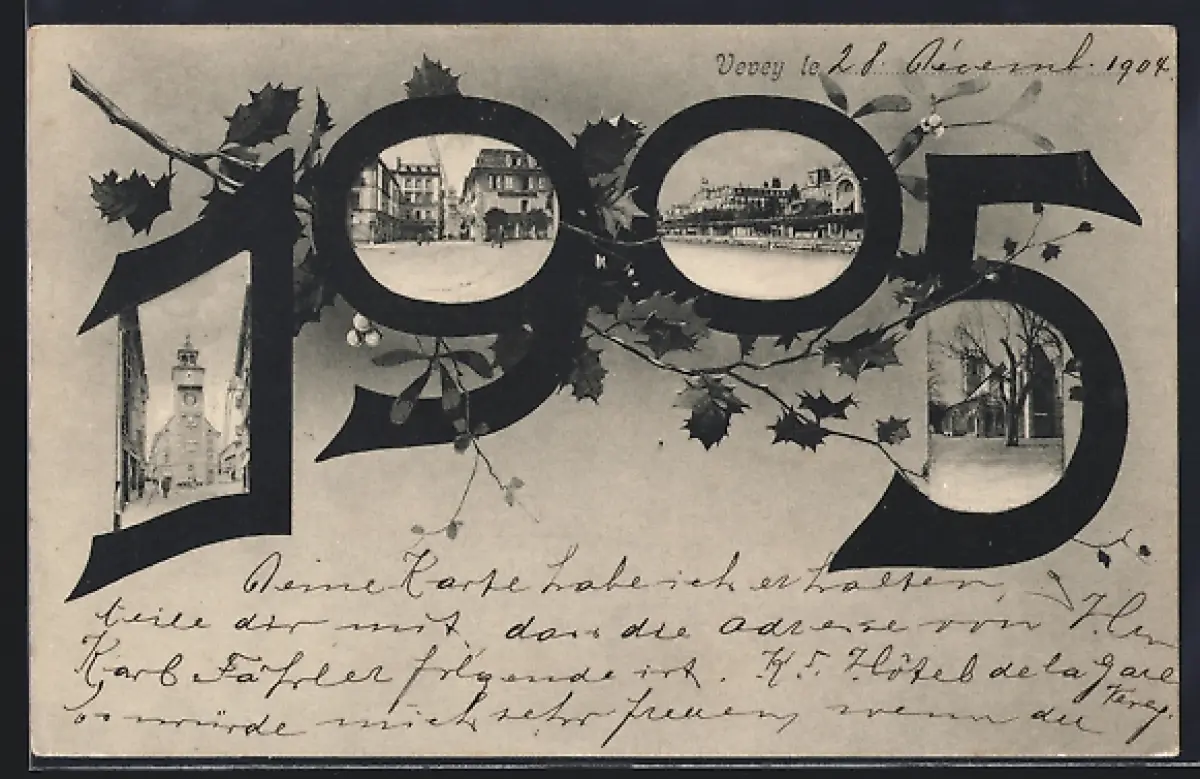 Vevey le 28. Décemb. 1904
1905
Deine Karte habe ich erhalten,
teile dir mit, das die Adresse von Hrn
Karl Fährler folgende ist. K. F. Hôtel de la Gare
Vevey.
es würde mich sehr freuen, wenn du